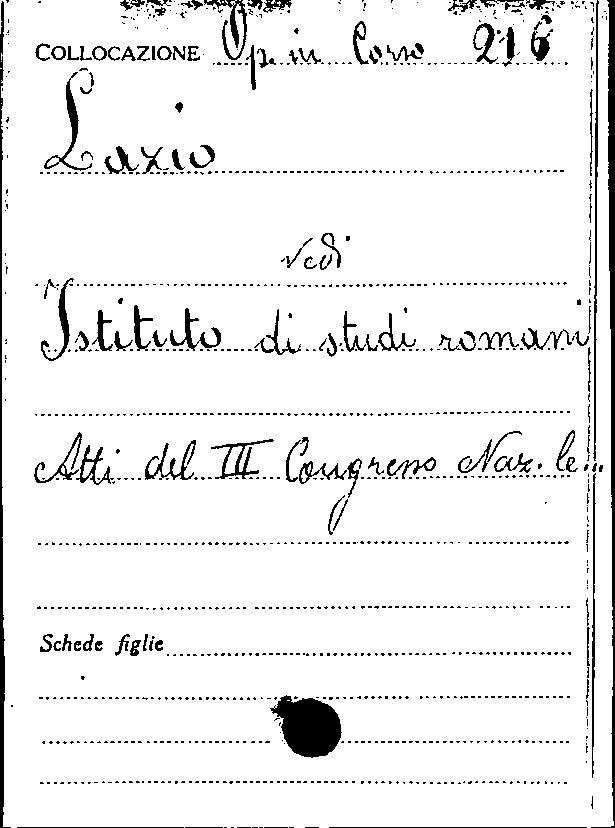 COLLOCAZIONE Op. in Corso 216
Lazio
vedi
Istituto di studi romani
Atti del III Congresso Naz.le...
Schede figlie